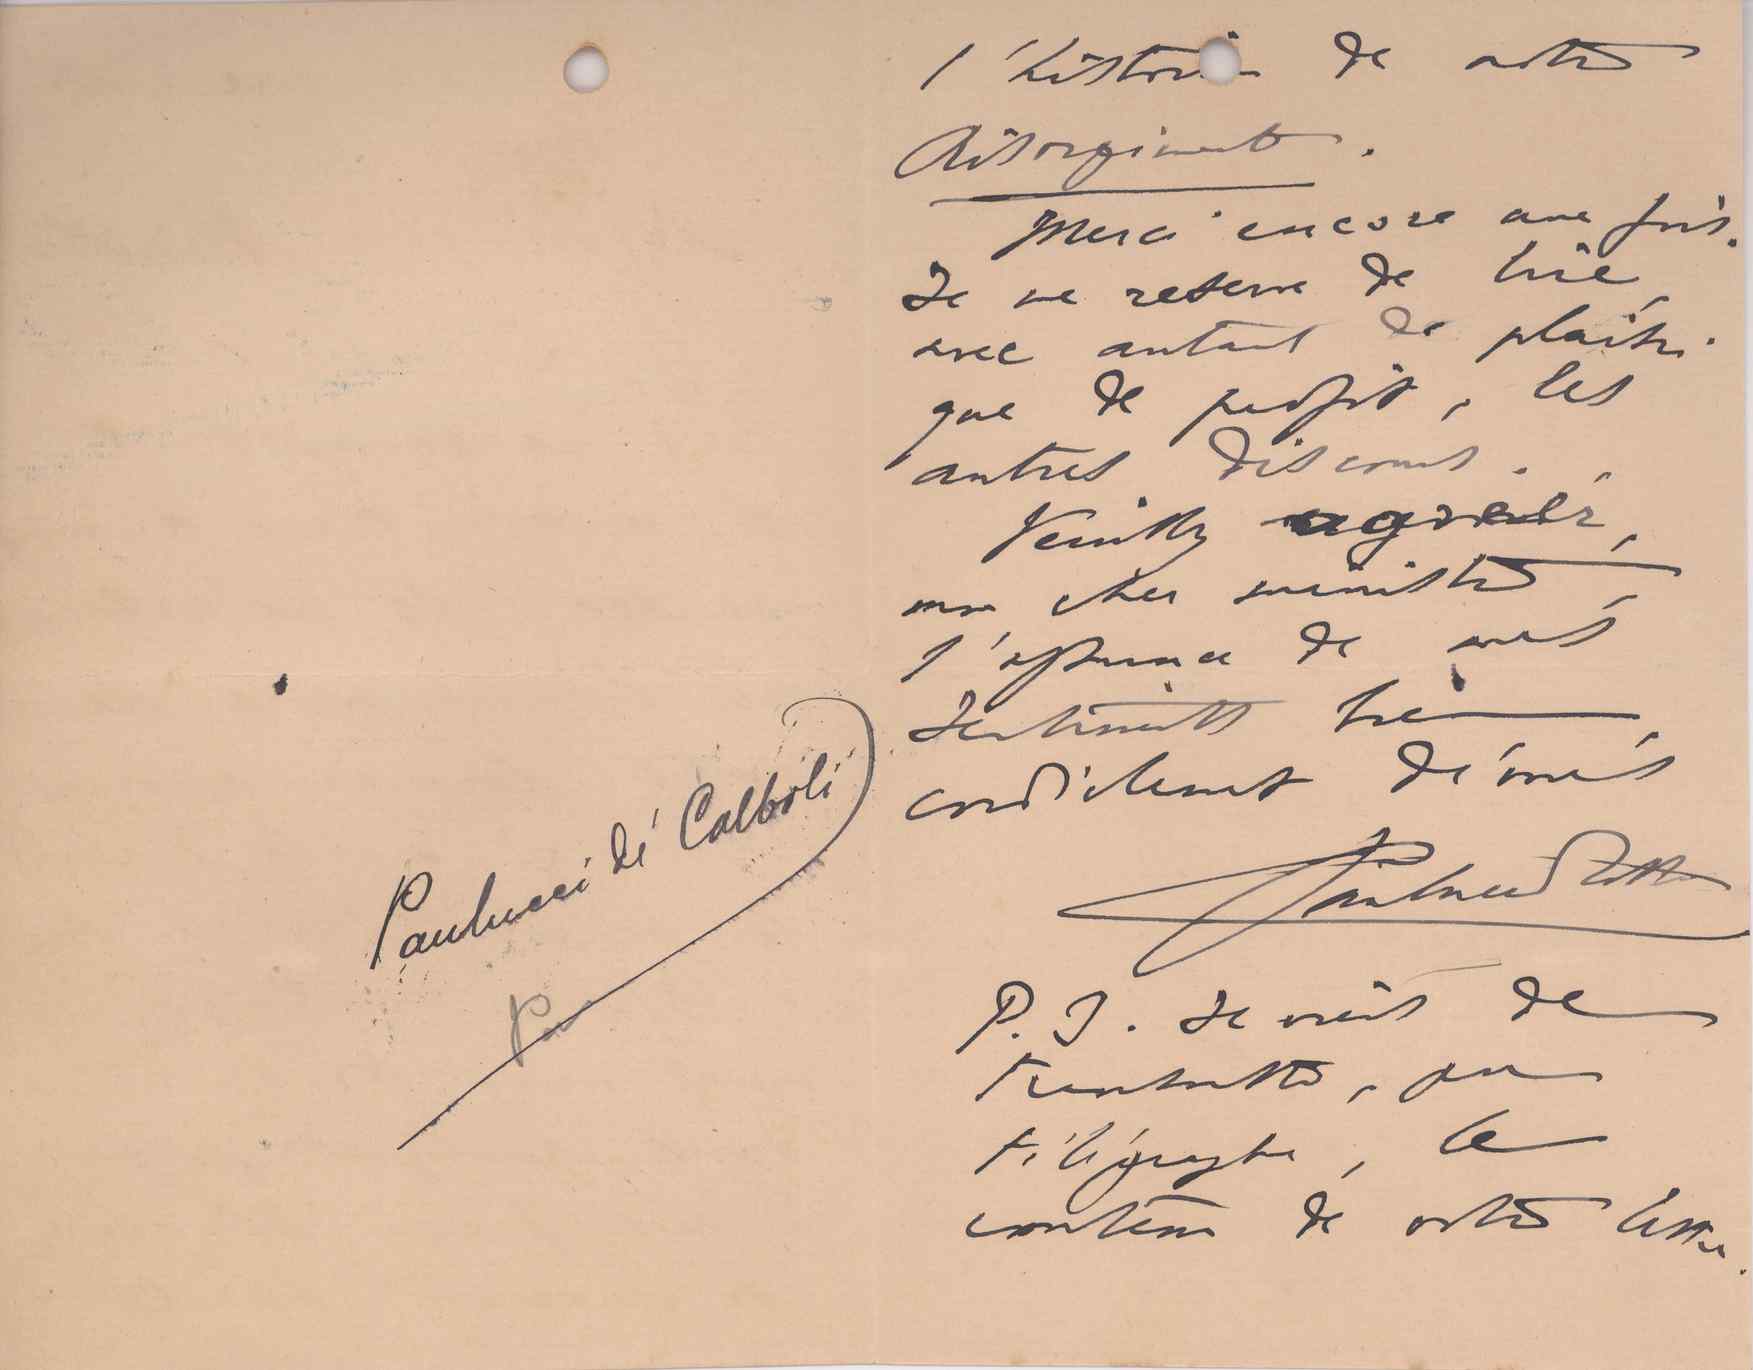 Paulucci de' Calboli
l'histoire de notre
Risorgimento.
Merci encore une fois.
Je me reserve de lire,
avec autant de plaisir
que de profit, les
autres discours.
Veuillez agréer,
mon cher ministre,
l'assurance de mes
sentiments bien
cordialement dévoués
Paulucci
P.S. Je viens de
transmettre, par
télégraphe, le
contenu de votre lettre.